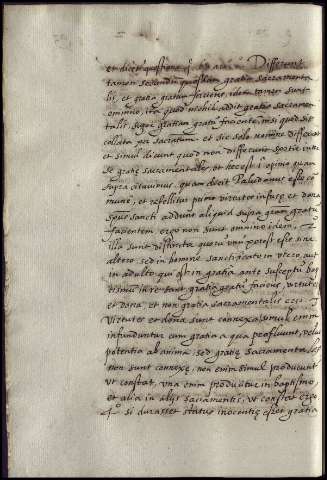 et dicet quæstione
tamen secundum quosdam gratia sacramenta
lis, et gratia gratum faciens, idem tamen sunt
omnino, ita quod nihil addit gratia sacramen
talis super gratiam gratum facientem, nisi quod sit
collata per sacramentum. et sic solo nomine differunt
et simul dicunt quod non differunt inter
se gratiæ sacramentales, et hæc est opinio quam
supra citavimus, quam dicit Paludanus esse co
munem, et refellitur
spiritus sancti addunt aliquid supra gratiam gratum
facientem ergo non sunt omnino idem.
illa sunt distincta quorum unum potest esse sine
altero, sed in homine sanctificato in utero, aut
in adulto qui est in gratia ante susceptum bap
tismum
et dona, et non gratia sacramentalis ergo.
virtutes et dona sunt connexa, simul enim
infunduntur cum gratia a qua profluunt, velut
potentiæ ab anima, sed gratiæ sacramentales
non sunt connexæ, non enim simul producuntur
ut constat, una enim producitur in baptismo,
et alia in aliis sacramentis, ut constat ergo.
si durasset status innocentiæ esset gratia